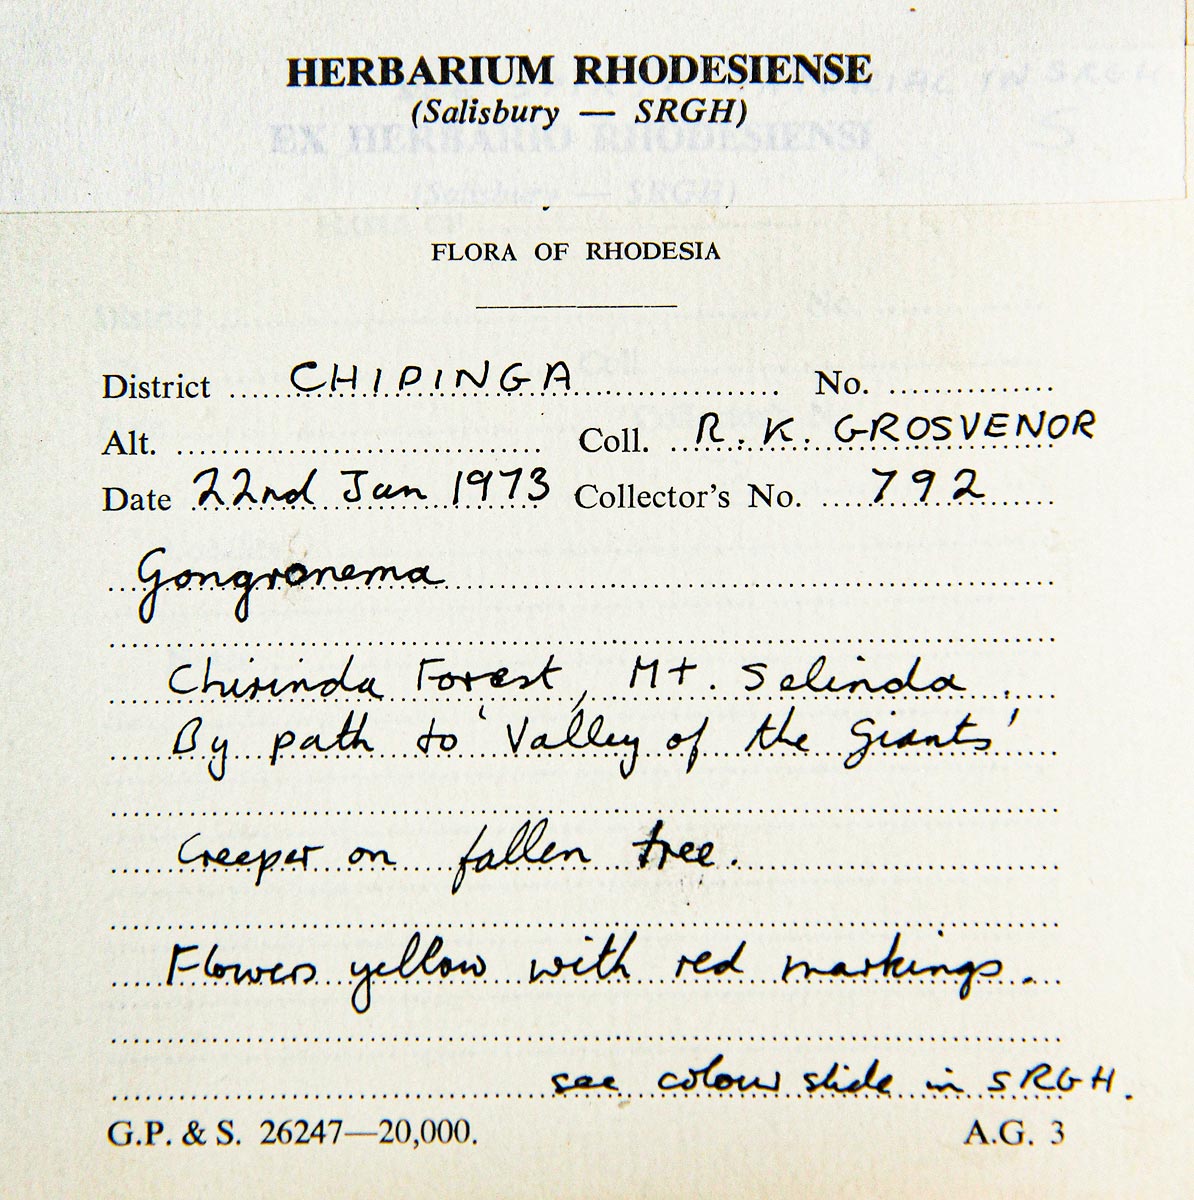 HERBARIUM RHODESIENSE
(Salisbury — SRGH)
EX HERBARIO RHODESIENSI
(Salisbury — SRGH)
FLORA OF RHODESIA
District CHIPINGA No.
Alt. Coll. R. K. GROSVENOR
Date 22nd Jan 1973 Collector's No. 792
Gongronema
Chirinda Forest, Mt. Selinda.
By path to 'Valley of the Giants'
Creeper on fallen tree.
Flowers yellow with red markings.
see colour slide in SRGH.
G.P. & S. 26247—20,000. A.G. 3